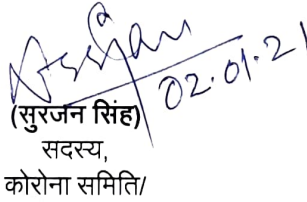 02.01.21
(सुरजन सिंह)
सदस्य,
कोरोना समिति/